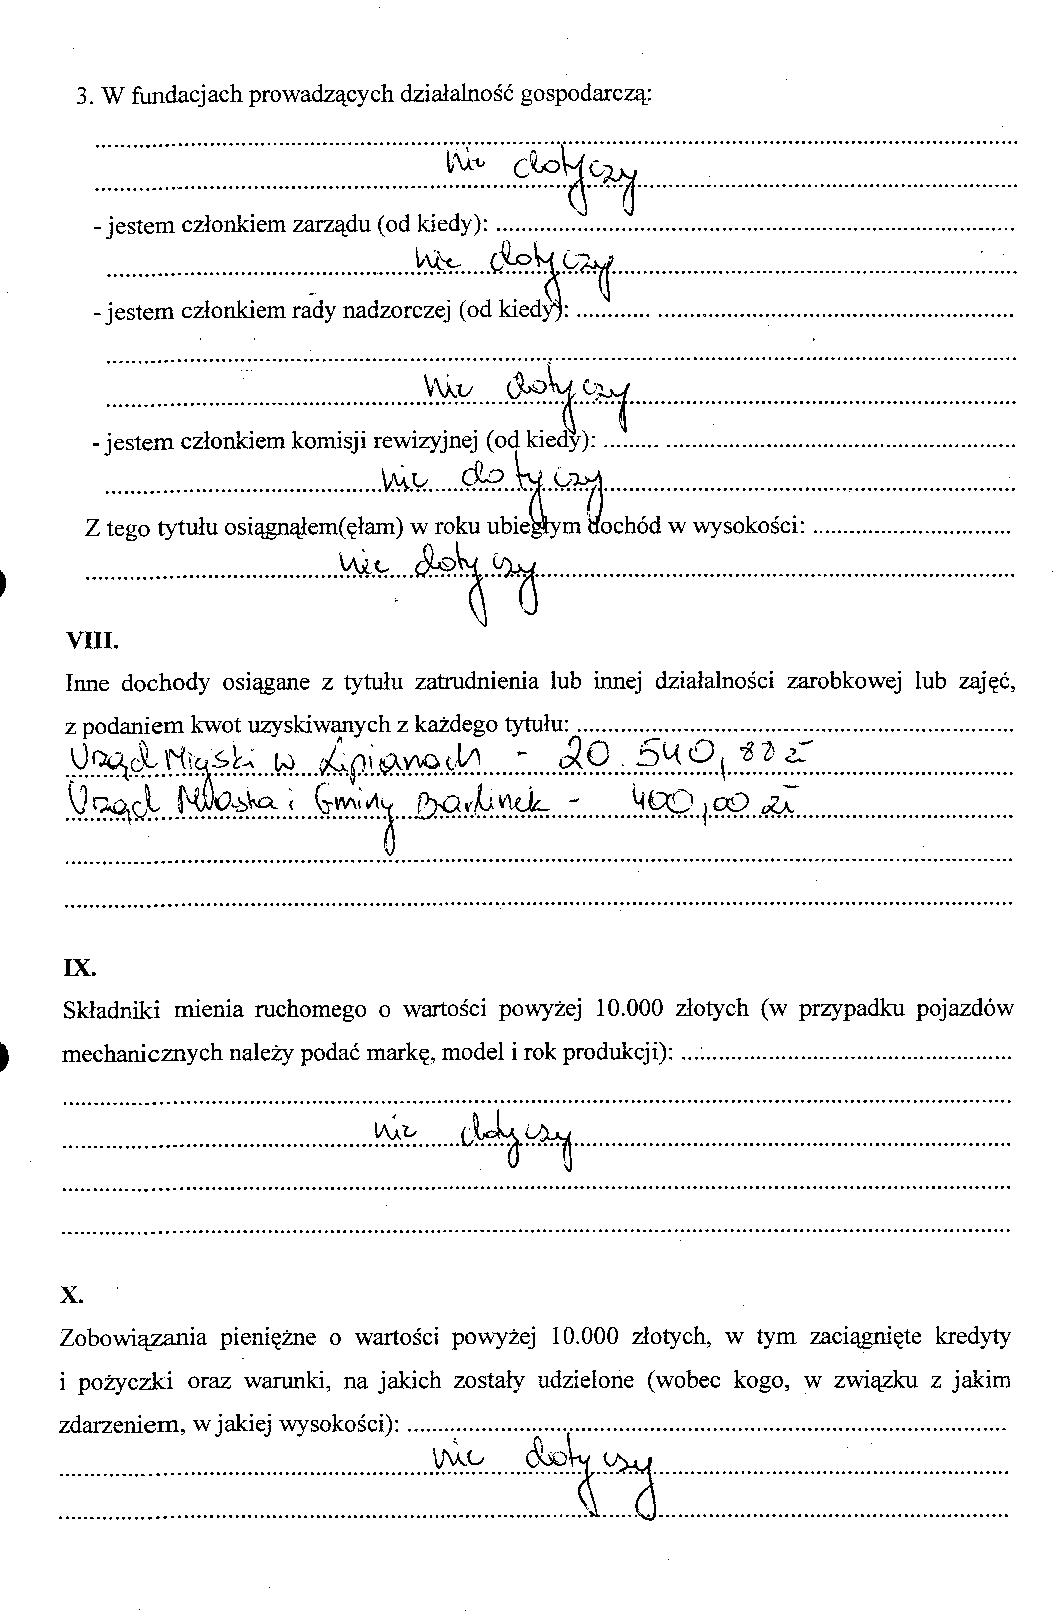 3. W fundacjach prowadzących działalność gospodarczą:
nie dotyczy
- jestem członkiem zarządu (od kiedy):
nie dotyczy
- jestem członkiem rady nadzorczej (od kiedy):
nie dotyczy
- jestem członkiem komisji rewizyjnej (od kiedy):
nie dotyczy
Z tego tytułu osiągnąłem(ęłam) w roku ubiegłym dochód w wysokości:
nie dotyczy
VIII.
Inne dochody osiągane z tytułu zatrudnienia lub innej działalności zarobkowej lub zajęć,
z podaniem kwot uzyskiwanych z każdego tytułu:
Urząd Miejski w Lipianach - 20.540, zł
Urząd Miasta i Gminy Barlinek - 400,00 zł
IX.
Składniki mienia ruchomego o wartości powyżej 10.000 złotych (w przypadku pojazdów
mechanicznych należy podać markę, model i rok produkcji):
nie dotyczy
X.
Zobowiązania pieniężne o wartości powyżej 10.000 złotych, w tym zaciągnięte kredyty
i pożyczki oraz warunki, na jakich zostały udzielone (wobec kogo, w związku z jakim
zdarzeniem, w jakiej wysokości):
nie dotyczy